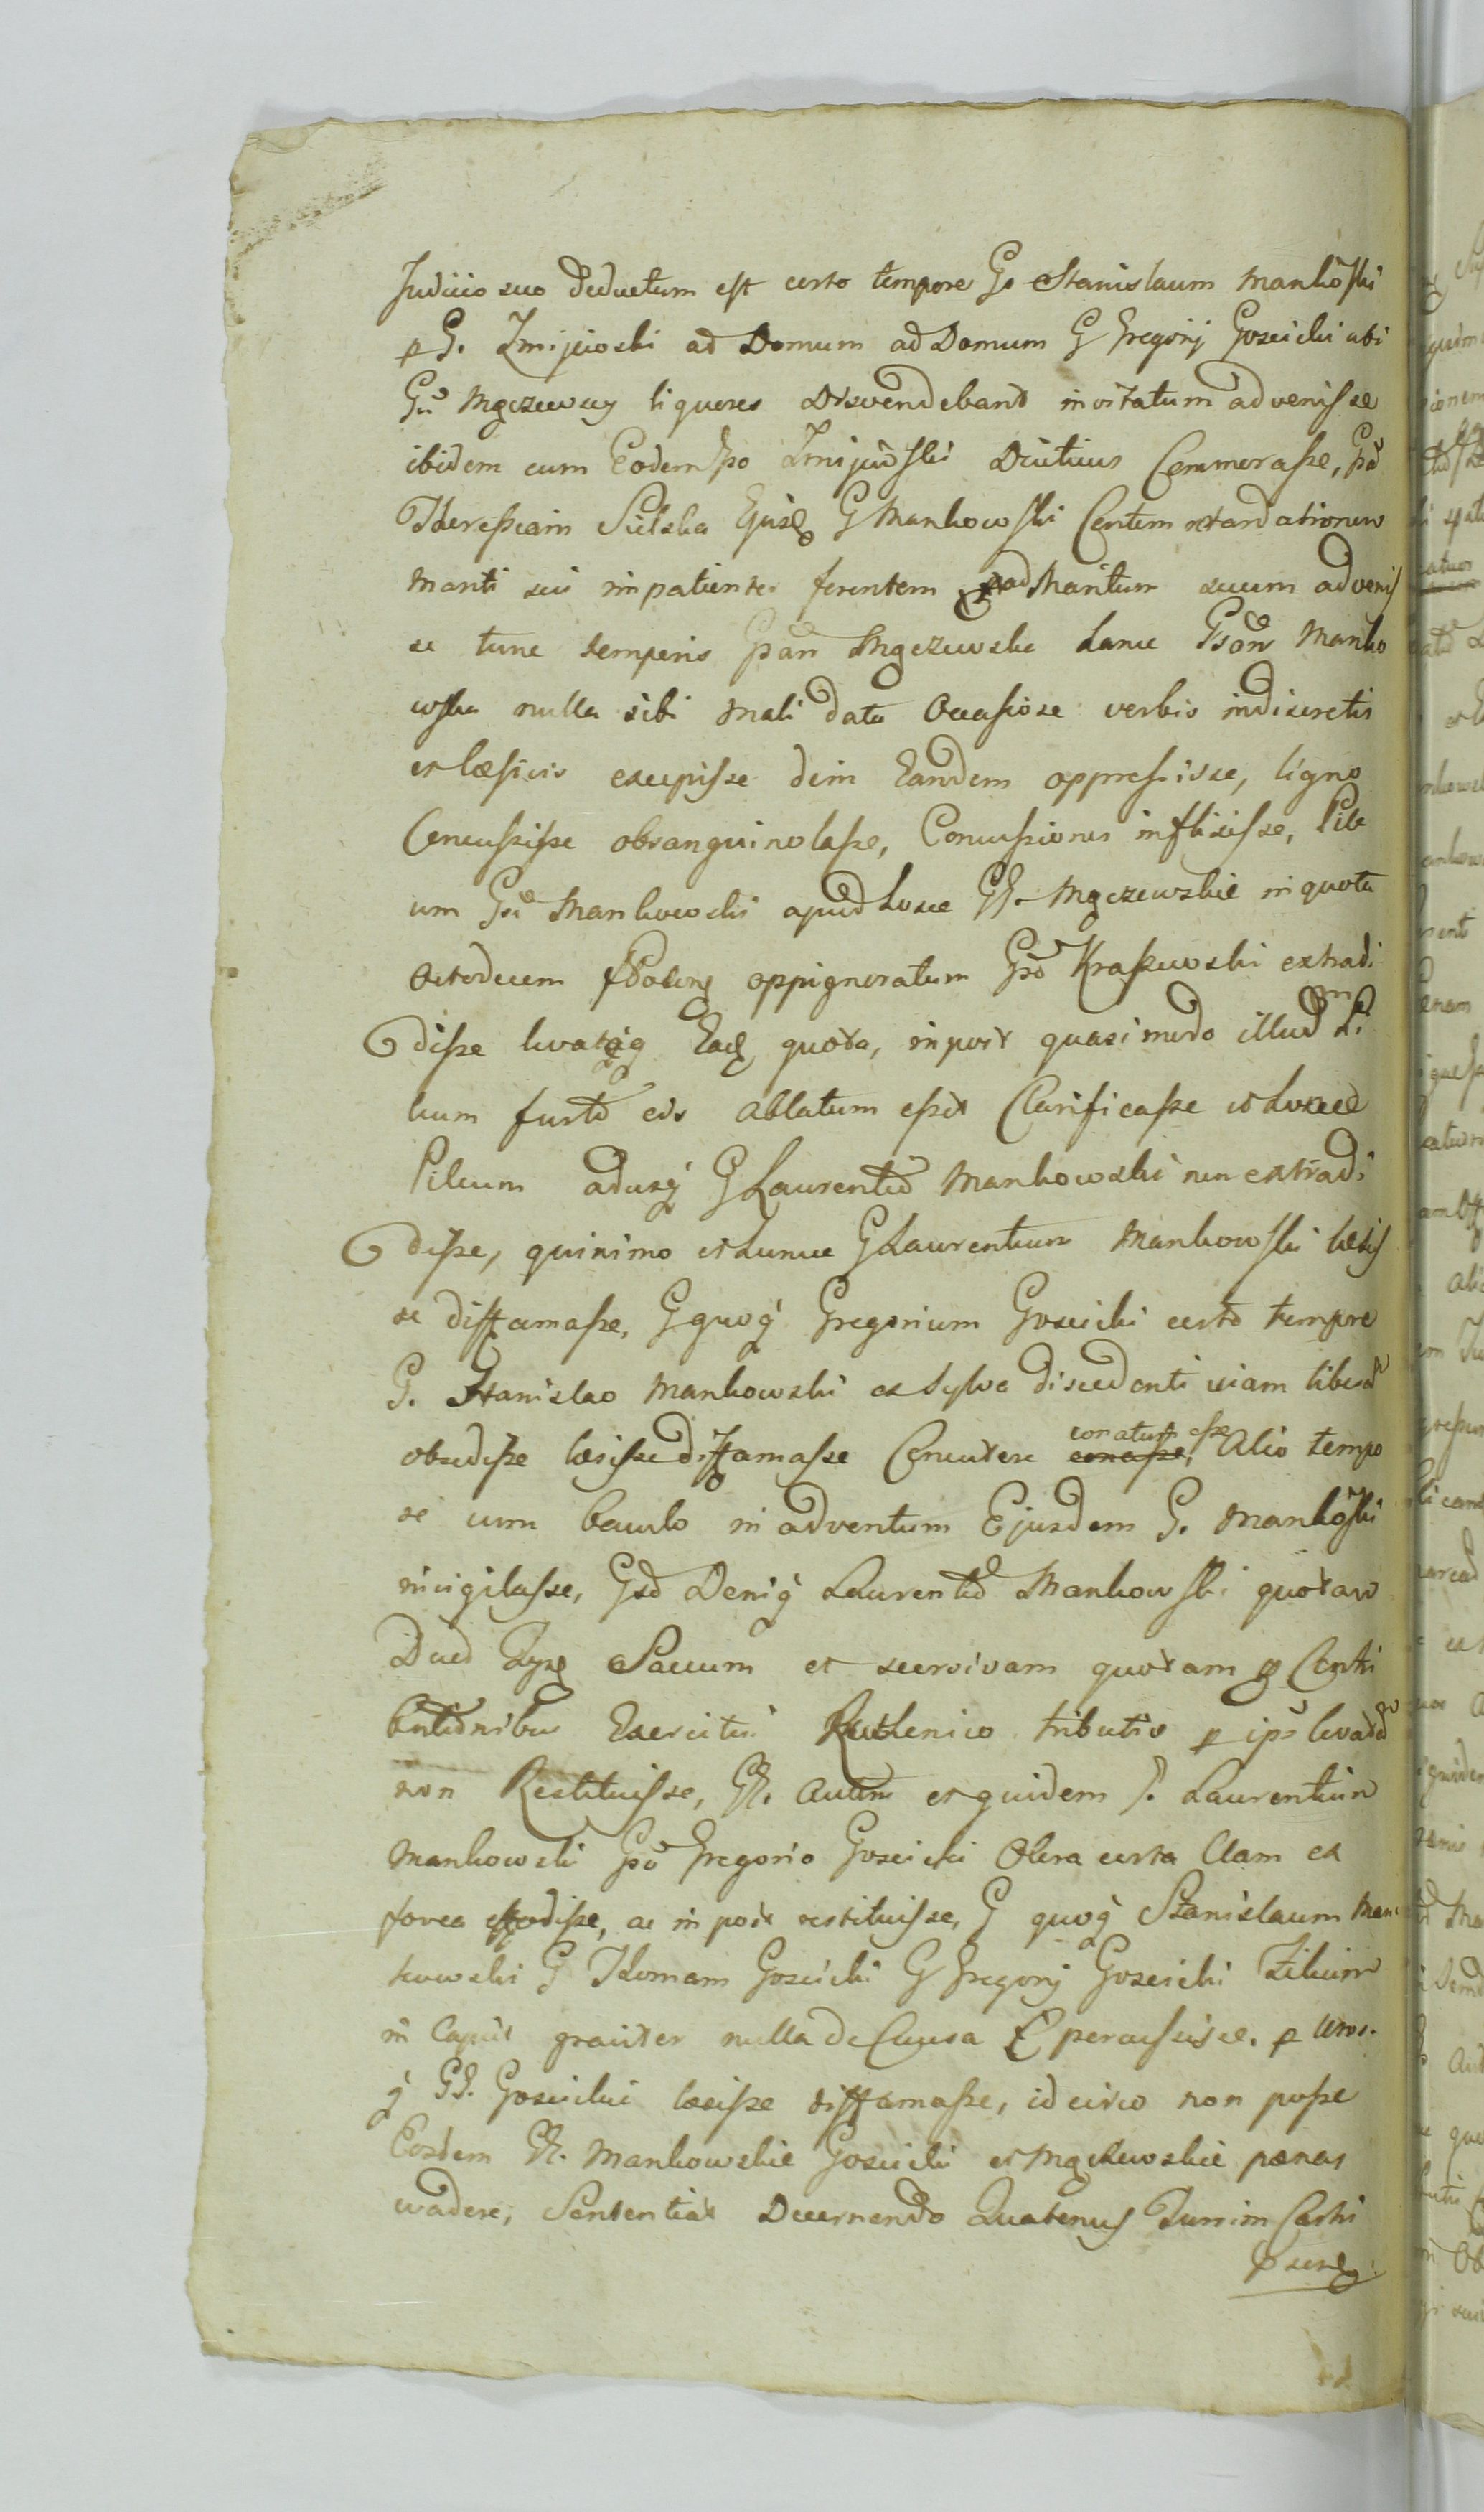 Judicio suo deductum est certo tempore Go Stanislaum Mankoski
p G. Zmijeioski ad Domum ad Domum G Gregorij Goscicki ubi
Gu Mgczewscy liqueres Disvendebant invitatum advenisse
ibidem cum Eodem Zmijewski Diutius Commorasse,
Theressiam Sielska Ejusq G Mankowski Contem retardationem
Mariti sui impatienter ferentem ad Maritum suum advenis
se tunc temporis Mgczewska hanc Manko
wska nulla sibi mali data Occasione verbis indiscretis
et læsivis excepisse dein Eandem oppressisse, ligno
Concussisse obsanguinolasse, Concussiones inflixisse, Pile
um Mankowski apud hosce GG. Mgczewskie in quota
octodecem oppigneratum Kraszewski extradi
disse quota, in post quasi modo illud Pi
leum furto eis ablatum esset Clarificasse et
Pileum adusq G Laurentio Mankowski non extradi
disse, quinimo et hunce G Laurentium Mankowski læsis
se diffamasse, G quoq Gregorium Goscicki certo tempre
G. Stanislao Mankowski ex Sylva discedenti viam liberã
obsedisse læsisse diffamasse Concutere conasse, conatum esse Alio tempo
re cum baculo in adventum Ejusdem G. Mankoski
invigilasse, Deniq Laurentio Mankowski quotam
Saccum et quotam p Contri
butionibus Exercitui Ruthenico tributis p
non Restituisse, autem et quidem Laurentium
Mankowski Gregorio Goscicki Olera certa Clam ex
fovea effodisse, ac in post restituisse, G quoq Stanislaum Man
kowski G Thomam Goscicki G Gregorij Goscicki Filium
in Caput graviter nulla de Causa percussisse, p utros
q GG. Goscickie læsisse diffamasse, idcirco non posse
Eosdem Mankowskie Goscicki et Mgczewskie pænas
evadere, Sententiat Decernendo Quatenus Turrim Castri